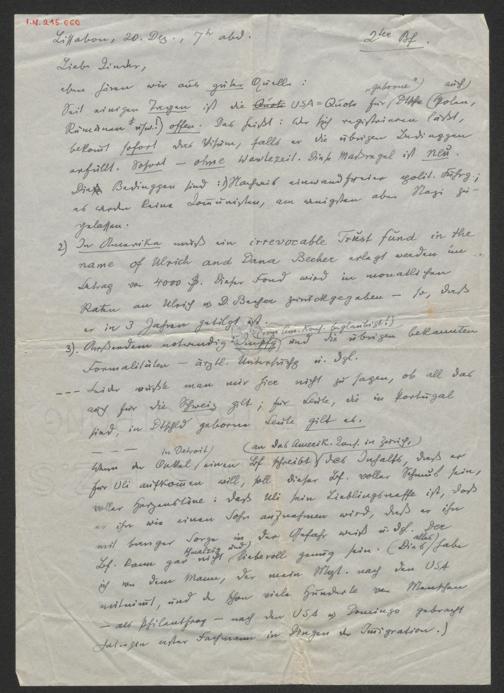 I.N. 245.660
Lissabon, 20. Dez., 7h abd.
2ter Bf.
Liebe Kinder,
eben hören wir aus guter Quelle:
Seit einigen Tagen ist die Quote USA=Quote für geborne Dtsche (auch Polen,
Rumänen usw.!) offen. Das heißt: wer sich registrieren läßt,
bekommt sofort das Visum, falls er die übrigen Bedinggen
erfüllt. Sofort – ohne Wartezeit. Diese Massregel ist neu.
Die Bedinggen sind: 1) Nachweis einwandfreier polit. Führg;
es werden keine Communisten, am wenigsten aber Nazi zu-
gelassen.
2) In Amerika muß ein irrevocable Trust fund in the
name of Ulrich and Dana Becher erlegt werden im
Betrag von 4000 $. Dieser Fond wird in monatlichen
Raten an Ulrich u D. Becher zurückgegeben – so, daß
er in 3 Jahren getilgt ist.
3). Außerdem notwendig: (vom Am. Kons. beglaubigt!) und die übrigen bekannten
Formalitäten – ärztl. Untersuchg u. dgl.
– – – Leider wußte man mir hier nicht zu sagen, ob all das
auch für die Schweiz gilt; für Leute, die in Portugal
sind, in Dtschld geborne Leute gilt es.
– – – Wenn der Onkel in Detroit einen Bf. schreibt (an das Amerik. Cons. in Zürich,) des Inhalts, daß er
für Uli aufkommen will, soll dieser Bf. voller Schmus sein,
voller Herzenstöne: daß Uli sein Lieblingsneffe ist, daß
er ihn wie einen Sohn aufnehmen wird, daß er ihn
mit banger Sorge in der Gefahr weiß u. dgl. Der
Bf. kann gar nicht schmalzig und liebevoll genug sein. (Dies alles habe
ich von dem Mann, der mein Mspt. nach den USA
mitnimmt, und der schon viele Hunderte von Menschen
– als Philanthrop – nach den USA u Domingo gebracht
hat: ein erster Fachmann in Dingen der Immigration.)